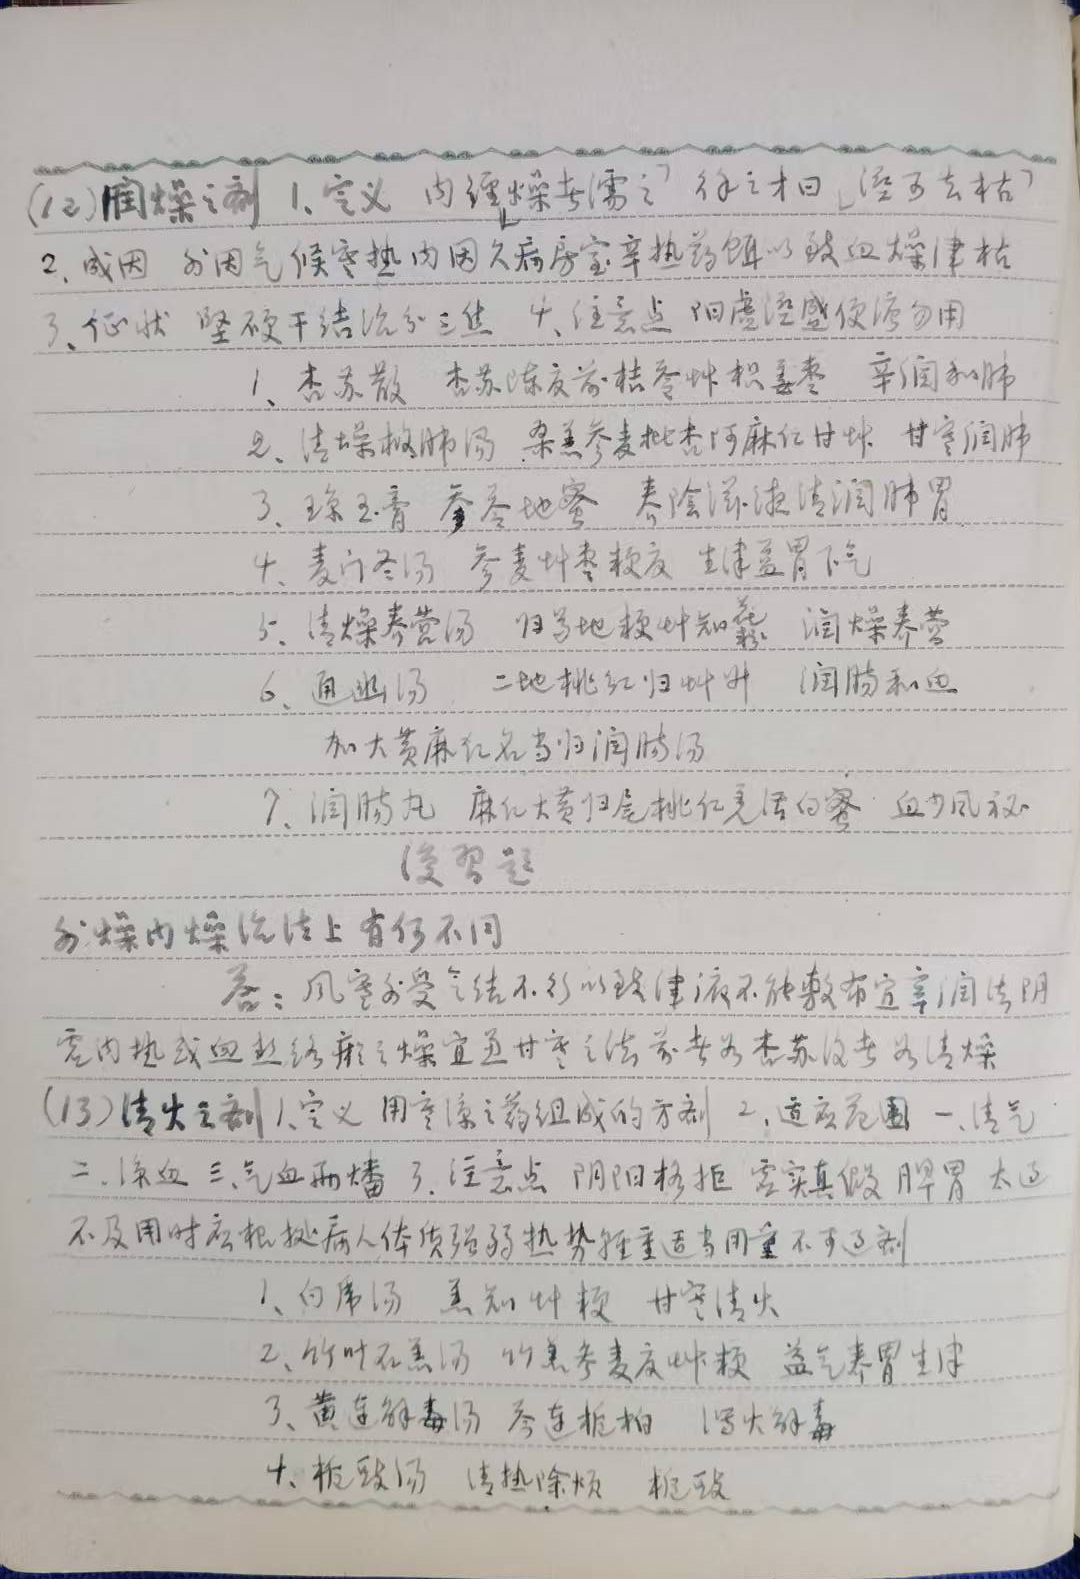 (12)润燥之剂 1、定义 内经「燥者濡之」徐之才曰「湿可去枯」
2、成因 外因气候寒热内因久病房室辛热药饵以致血燥津枯
3、征状 坚硬干结治分三焦 4、注意点 阳虚湿盛便溏勿用
1、杏苏散 杏苏陈夏前桔苓草枳姜枣 辛润和肺
2、清燥救肺汤 桑羔参麦枇杏阿麻仁甘草 甘寒润肺
3、琼玉膏 参苓地蜜 养阴滋液清润肺胃
4、麦门冬汤 参麦草枣粳夏 生津益胃下气
5、清燥养营汤 归芍地梗草知花粉 润燥养营
6、通幽汤 二地桃红归草升 润肠和血
加大黄麻仁名当归润肠汤
7、润肠丸 麻仁大黄归尾桃仁羌活白蜜 血少风秘
复习题
外燥内燥治法上有何不同
答：风寒外受气结不行以致津液不能敷布宜辛润法阴
虚内热或血热络瘀之燥宜通甘寒之法前者为杏苏后者为清燥
(13)清火之剂 1、定义 用寒凉之药组成的方剂 2、适应范围 一、清气
二、凉血 三、气血两燔 3、注意点 阴阳格拒 虚实真假 脾胃 太过
不及用时应根据病人体质强弱热势轻重适当用量不可过剂
1、白虎汤 羔知草粳 甘寒清火
2、竹叶石羔汤 竹羔参麦夏草粳 益气养胃生津
3、黄连解毒汤 芩连栀柏 泻火解毒
4、栀豉汤 清热除烦 栀豉